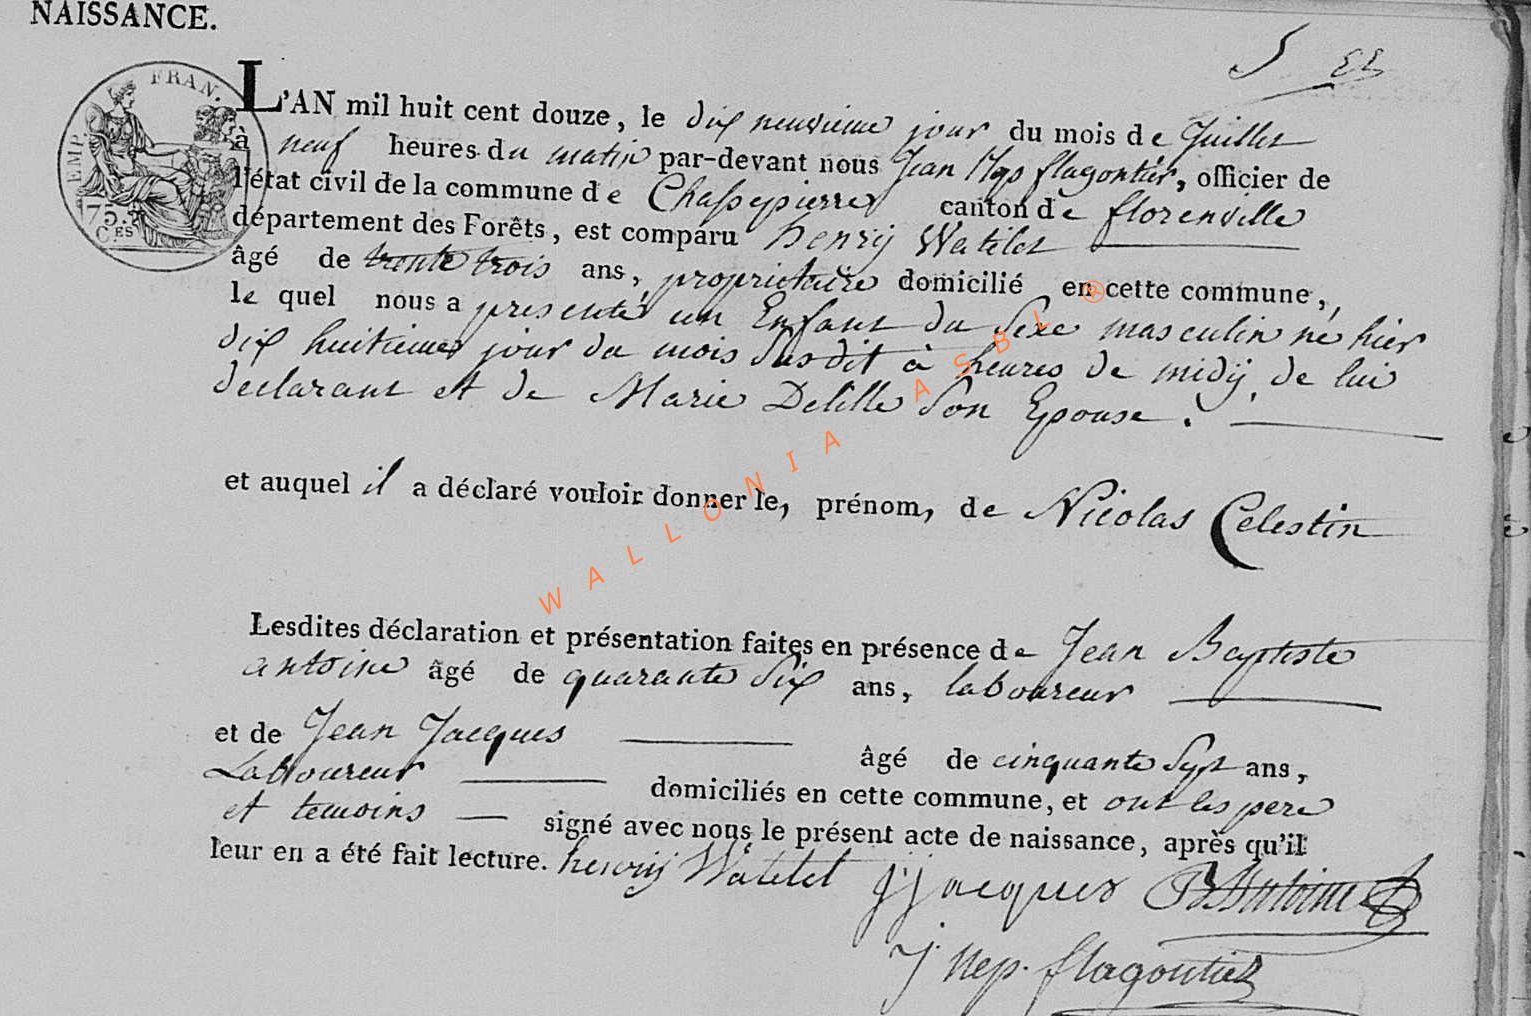 NAISSANCE.
5
EMP. FRAN.
75
C.ES
L'AN mil huit cent douze, le dix neuvieme jour du mois de Juillet
à neuf heures du matin par-devant nous Jean Nep flagontier, officier de
l'état civil de la commune de Chassepierre canton de florenville
département des Forêts, est comparu henry Watelet
âgé de trente trois ans, proprietaire domicilié en cette commune,
le quel nous a presenté un Enfant du Sexe masculin né hier
dix huitieme jour du mois Susdit à heures de midy, de lui
declarant et de Marie Delille Son Epouse.
et auquel il a déclaré vouloir donner le, prénom, de Nicolas Celestin
Lesdites déclaration et présentation faites en présence de Jean Baptiste
antoine âgé de quarante Six ans, laboureur
et de Jean Jacques âgé de cinquante Sept ans,
Laboureur domiciliés en cette commune, et ont les pere
et temoins signé avec nous le présent acte de naissance, après qu'il
leur en a été fait lecture. henry Watelet J Jacques JB Antoine
J Nep. flagontier
WALLONIA ASBL ®